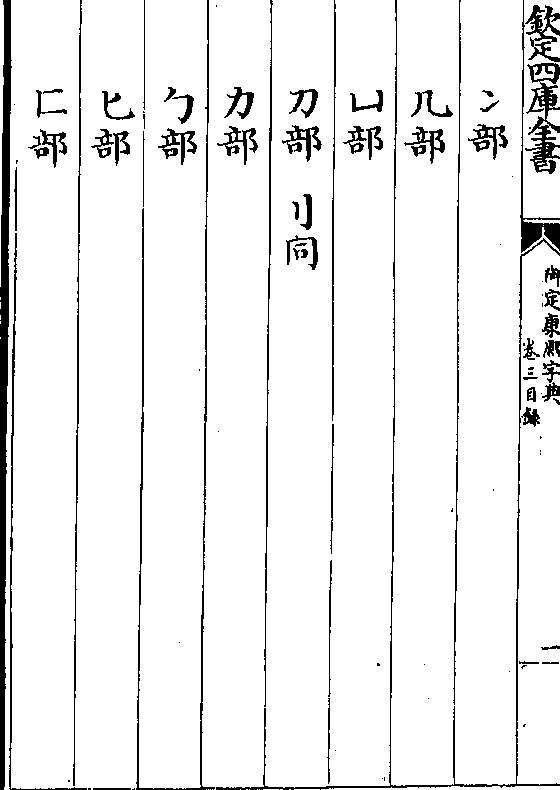 欽定四庫全書
御定康熙字典
卷三目錄
一
冫部
几部
凵部
刀部 刂同
力部
勹部
匕部
匚部